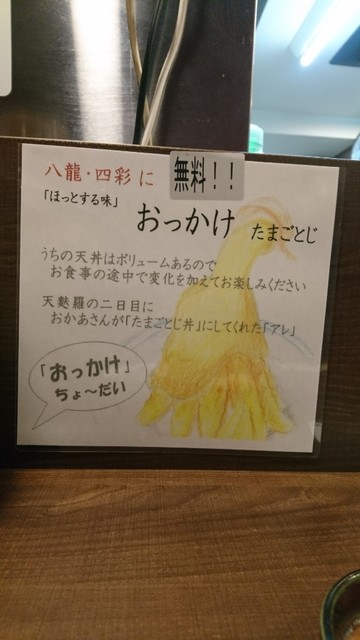 八龍・四彩 に 無料!!
「ほっとする味」
おっかけ たまごとじ
うちの天丼はボリュームあるので
お食事の途中で変化を加えてお楽しみください
天麩羅の二日目に
おかあさんが「たまごとじ丼」にしてくれた「アレ」
「おっかけ」
ちょ～だい